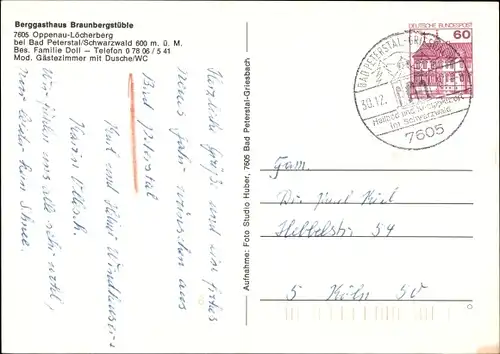 Berggasthaus Braunbergstüble
7605 Oppenau-Löcherberg
bei Bad Peterstal/Schwarzwald 600 m. ü. M.
Bes. Familie Doll — Telefon 0 78 06 / 5 41
Mod. Gästezimmer mit Dusche/WC
Herzliche Grüße und ein frohes
neues Jahr wünschen aus
Bad Peterstal
Karl und
Karin
Wir fühlen uns alle sehr wohl,
nur leider kein Schnee.
Aufnahme: Foto Studio Huber, 7605 Bad Peterstal-Griesbach
DEUTSCHE BUNDESPOST
60
BAD PETERSTAL-GRIESBACH
30.12.
im Schwarzwald
7605
Fam.
Karl
Hebbelstr. 54
5 Köln 50